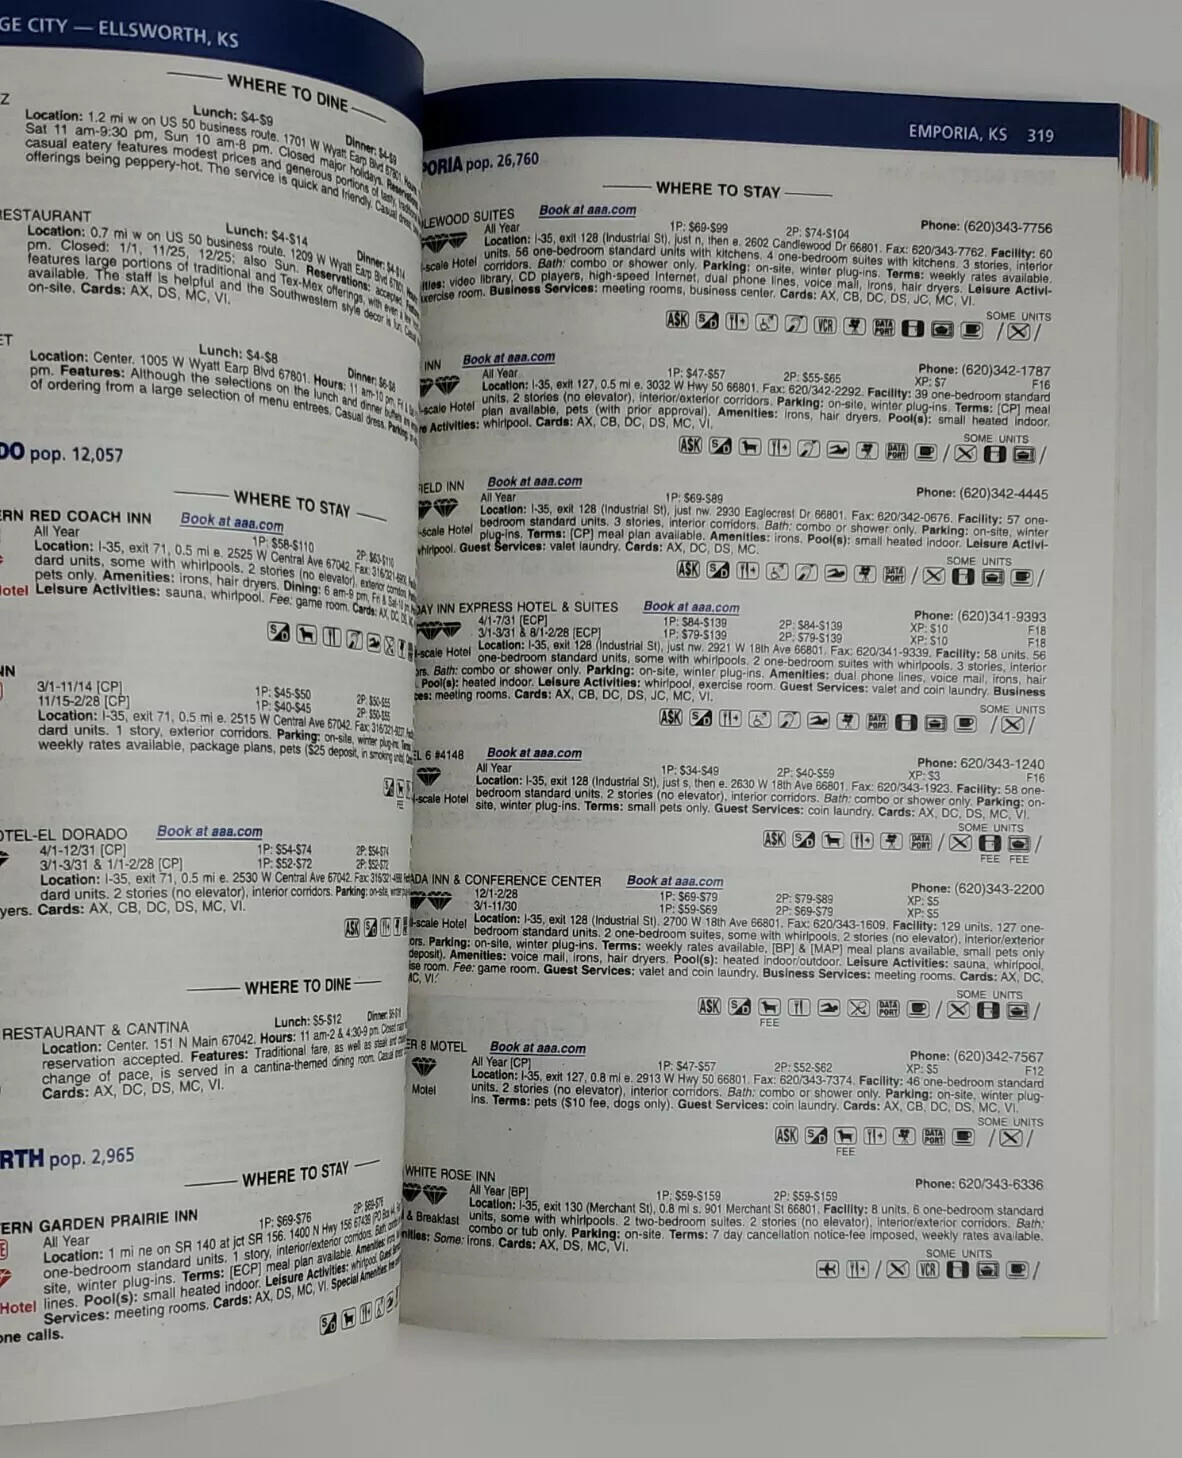 GE CITY — ELLSWORTH, KS
WHERE TO DINE
Z
Lunch: $4-$9
Dinner: $4-$9
Location: 1.2 mi w on US 50 business route. 1701 W Wyatt Earp Blvd 67801.
Sat 11 am-9:30 pm, Sun 10 am-8 pm. Closed major holidays. Reservations:
casual eatery features modest prices and generous portions of tasty,
offerings being peppery-hot. The service is quick and friendly. Casual dress.
ESTAURANT
Lunch: $4-$14
Dinner: $4-$14
Location: 0.7 mi w on US 50 business route. 1209 W Wyatt Earp Blvd 67801.
pm. Closed: 1/1, 11/25, 12/25; also Sun. Reservations: accepted.
features large portions of traditional and Tex-Mex offerings, with even a few
available. The staff is helpful and the Southwestern style decor is fun.
on-site. Cards: AX, DS, MC, VI.
ET
Lunch: $4-$8
Dinner: $6-$8
Location: Center. 1005 W Wyatt Earp Blvd 67801. Hours: 11 am-10 pm, Fri &
pm. Features: Although the selections on the lunch and dinner buffets are
of ordering from a large selection of menu entrees. Casual dress. Parking:
DO pop. 12,057
WHERE TO STAY
ERN RED COACH INN Book at aaa.com
All Year 1P: $58-$110 2P: $63-$110
Location: I-35, exit 71, 0.5 mi e. 2525 W Central Ave 67042. Fax: 316/321-
dard units, some with whirlpools. 2 stories (no elevator), exterior corridors.
pets only. Amenities: irons, hair dryers. Dining: 6 am-9 pm, Fri & Sat-
otel Leisure Activities: sauna, whirlpool. Fee: game room. Cards: AX, DC, DS,
NN
3/1-11/14 [CP] 1P: $45-$50 2P: $50-$55
11/15-2/28 [CP] 1P: $40-$45 2P: $50-$55
Location: I-35, exit 71, 0.5 mi e. 2515 W Central Ave 67042. Fax: 316/321-
dard units. 1 story, exterior corridors. Parking: on-site, winter plug-ins.
weekly rates available, package plans, pets ($25 deposit, in smoking units).
FEE
OTEL-EL DORADO Book at aaa.com
4/1-12/31 [CP] 1P: $54-$74 2P: $54-$74
3/1-3/31 & 1/1-2/28 [CP] 1P: $52-$72 2P: $52-$72
Location: I-35, exit 71, 0.5 mi e. 2530 W Central Ave 67042. Fax: 316/321-
dard units. 2 stories (no elevator), interior corridors. Parking: on-site,
yers. Cards: AX, CB, DC, DS, MC, VI.
A$K
WHERE TO DINE
RESTAURANT & CANTINA Lunch: $5-$12
Location: Center. 151 N Main 67042. Hours: 11 am-2 & 4:30-9 pm. Closed
reservation accepted. Features: Traditional fare, as well as steak and
change of pace, is served in a cantina-themed dining room. Casual
Cards: AX, DC, DS, MC, VI.
RTH pop. 2,965
WHERE TO STAY
ERN GARDEN PRAIRIE INN
All Year 1P: $69-$76 2P: $69-$76
Location: 1 mi ne on SR 140 at jct SR 156. 1400 N Hwy 156 67439 (PO Box
one-bedroom standard units. 1 story, interior/exterior corridors. Bath:
site, winter plug-ins. Terms: [ECP] meal plan available. Amenities:
Hotel lines. Pool(s): small heated indoor. Leisure Activities: whirlpool. Guest
Services: meeting rooms. Cards: AX, DS, MC, VI. Special Amenities:
one calls.
EMPORIA, KS 319
PORIA pop. 26,760
WHERE TO STAY
LEWOOD SUITES Book at aaa.com Phone: (620)343-7756
All Year 1P: $69-$99 2P: $74-$104
Location: I-35, exit 128 (Industrial St), just n, then e. 2602 Candlewood Dr 66801. Fax: 620/343-7762. Facility: 60
units. 56 one-bedroom standard units with kitchens. 4 one-bedroom suites with kitchens. 3 stories, interior
-scale Hotel corridors. Bath: combo or shower only. Parking: on-site, winter plug-ins. Terms: weekly rates available.
ities: video library, CD players, high-speed Internet, dual phone lines, voice mail, irons, hair dryers. Leisure Activi-
exercise room. Business Services: meeting rooms, business center. Cards: AX, CB, DC, DS, JC, MC, VI.
SOME UNITS
A$K VCR DATA PORT
INN Book at aaa.com Phone: (620)342-1787
All Year 1P: $47-$57 2P: $55-$65 XP: $7 F16
Location: I-35, exit 127, 0.5 mi e. 3032 W Hwy 50 66801. Fax: 620/342-2292. Facility: 39 one-bedroom standard
units. 2 stories (no elevator), interior/exterior corridors. Parking: on-site, winter plug-ins. Terms: [CP] meal
-scale Hotel plan available, pets (with prior approval). Amenities: irons, hair dryers. Pool(s): small heated indoor.
re Activities: whirlpool. Cards: AX, CB, DC, DS, MC, VI.
SOME UNITS
A$K DATA PORT
IELD INN Book at aaa.com Phone: (620)342-4445
All Year 1P: $69-$89
Location: I-35, exit 128 (Industrial St), just nw. 2930 Eaglecrest Dr 66801. Fax: 620/342-0676. Facility: 57 one-
bedroom standard units. 3 stories, interior corridors. Bath: combo or shower only. Parking: on-site, winter
-scale Hotel plug-ins. Terms: [CP] meal plan available. Amenities: irons. Pool(s): small heated indoor. Leisure Activi-
whirlpool. Guest Services: valet laundry. Cards: AX, DC, DS, MC.
SOME UNITS
A$K DATA PORT
DAY INN EXPRESS HOTEL & SUITES Book at aaa.com Phone: (620)341-9393
4/1-7/31 [ECP] 1P: $84-$139 2P: $84-$139 XP: $10 F18
3/1-3/31 & 8/1-2/28 [ECP] 1P: $79-$139 2P: $79-$139 XP: $10 F18
Location: I-35, exit 128 (Industrial St), just nw. 2921 W 18th Ave 66801. Fax: 620/341-9339. Facility: 58 units. 56
-scale Hotel one-bedroom standard units, some with whirlpools. 2 one-bedroom suites with whirlpools. 3 stories, interior
ors. Bath: combo or shower only. Parking: on-site, winter plug-ins. Amenities: dual phone lines, voice mail, irons, hair
Pool(s): heated indoor. Leisure Activities: whirlpool, exercise room. Guest Services: valet and coin laundry. Business
ces: meeting rooms. Cards: AX, CB, DC, DS, JC, MC, VI.
SOME UNITS
A$K DATA PORT
EL 6 #4148 Book at aaa.com Phone: 620/343-1240
All Year 1P: $34-$49 2P: $40-$59 XP: $3 F16
Location: I-35, exit 128 (Industrial St), just s, then e. 2630 W 18th Ave 66801. Fax: 620/343-1923. Facility: 58 one-
bedroom standard units. 2 stories (no elevator), interior corridors. Bath: combo or shower only. Parking: on-
-scale Hotel site, winter plug-ins. Terms: small pets only. Guest Services: coin laundry. Cards: AX, DC, DS, MC, VI.
SOME UNITS
A$K DATA PORT
FEE FEE
ADA INN & CONFERENCE CENTER Book at aaa.com Phone: (620)343-2200
12/1-2/28 1P: $69-$79 2P: $79-$89 XP: $5
3/1-11/30 1P: $59-$69 2P: $69-$79 XP: $5
Location: I-35, exit 128 (Industrial St). 2700 W 18th Ave 66801. Fax: 620/343-1609. Facility: 129 units. 127 one-
-scale Hotel bedroom standard units. 2 one-bedroom suites, some with whirlpools. 2 stories (no elevator), interior/exterior
ors. Parking: on-site, winter plug-ins. Terms: weekly rates available, [BP] & [MAP] meal plans available, small pets only
deposit). Amenities: voice mail, irons, hair dryers. Pool(s): heated indoor/outdoor. Leisure Activities: sauna, whirlpool,
ise room. Fee: game room. Guest Services: valet and coin laundry. Business Services: meeting rooms. Cards: AX, DC,
MC, VI.
SOME UNITS
A$K DATA PORT
FEE
ER 8 MOTEL Book at aaa.com Phone: (620)342-7567
All Year [CP] 1P: $47-$57 2P: $52-$62 XP: $5 F12
Location: I-35, exit 127, 0.8 mi e. 2913 W Hwy 50 66801. Fax: 620/343-7374. Facility: 46 one-bedroom standard
units. 2 stories (no elevator), interior corridors. Bath: combo or shower only. Parking: on-site, winter plug-
Motel ins. Terms: pets ($10 fee, dogs only). Guest Services: coin laundry. Cards: AX, CB, DC, DS, MC, VI.
SOME UNITS
A$K DATA PORT
FEE
WHITE ROSE INN Phone: 620/343-6336
All Year [BP] 1P: $59-$159 2P: $59-$159
Location: I-35, exit 130 (Merchant St), 0.8 mi s. 901 Merchant St 66801. Facility: 8 units. 6 one-bedroom standard
& Breakfast units, some with whirlpools. 2 two-bedroom suites. 2 stories (no elevator), interior/exterior corridors. Bath:
combo or tub only. Parking: on-site. Terms: 7 day cancellation notice-fee imposed, weekly rates available.
nities: Some: irons. Cards: AX, DS, MC, VI.
SOME UNITS
VCR